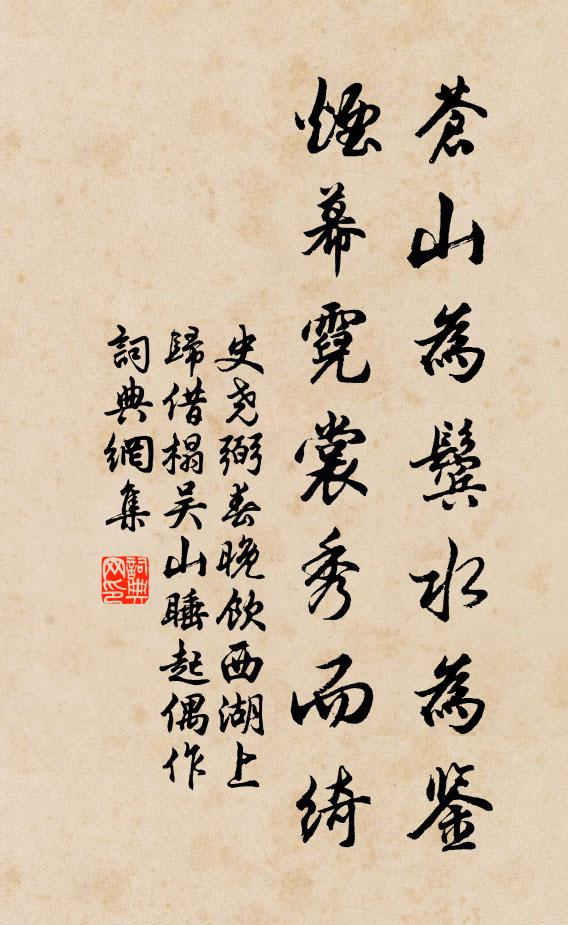 蒼山為鬓水為鉴
煙幕霓裳秀而綺
史尧弼春晚飲西湖上
歸借榻吴山睡起偶作
詞典網集
詞典网印